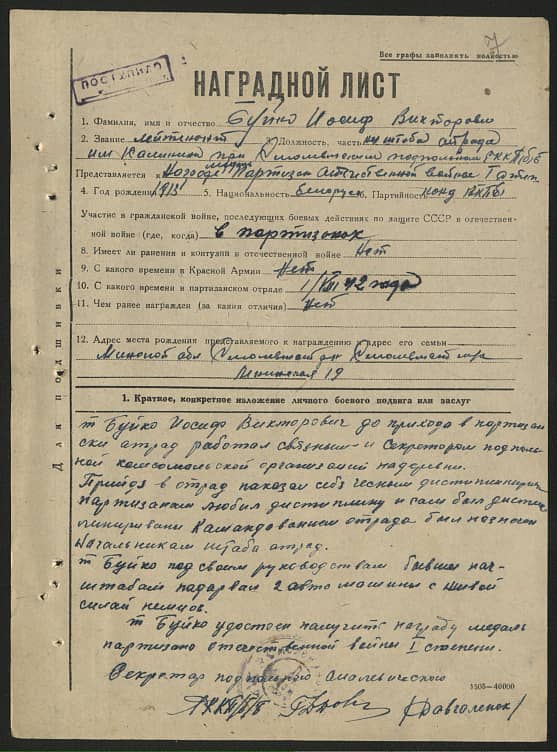 7
Все графы заполнять полностью
ПОСТУПИЛО
НАГРАДНОЙ ЛИСТ
1. Фамилия, имя и отчество Буйко Иосиф Викторови
2. Звание лейтенант 3. Должность, часть нш штаба отряда
им Калинина при Смолевическом подпольном РККП/б/Б
Представляется к Награде медаль Партизан Отечественной войны I степ
4. Год рождения 1915 5. Национальность Беларус 6. Партийность канд ВКП/б/
Участие в гражданской войне, последующих боевых действиях по защите СССР в отечествен-
ной войне (где, когда) в партизанах
8. Имеет ли ранения и контузии в отечественной войне Нет
9. С какого времени в Красной Армии Нет
10. С какого времени в партизанском отряде 1/VIII 42 года
11. Чем ранее награжден (за какия отличия) Нет
12. Адрес места рождения представляемого к награждению и адрес его семьи
Минской обл Смолевический
19
Для подшивки
1. Краткое, конкретное изложение личного боевого подвига или заслуг
т Буйко Иосиф Викторович до прихода в партизан
ски отряд работал связным и Секретором подполь
ной комсомольской организаций надеревни.
Прийдя в отряд показал себя чесным дисциплинирун
партизаном любил дисциплину и сам был дисцеп
линировани Камандованием отряда был назначен
Начальникам штаба отряд.
т Буйко под своим руководствам бывши нач-
штабам падарвал 2 авто машины с живой
силай немцов.
т Буйко удостоен палучить награду медаль
партизано отечественной войны I степени.
Секретар подпольного Смалевической
РККП/б/Б (Давгаленок)
1505—40000